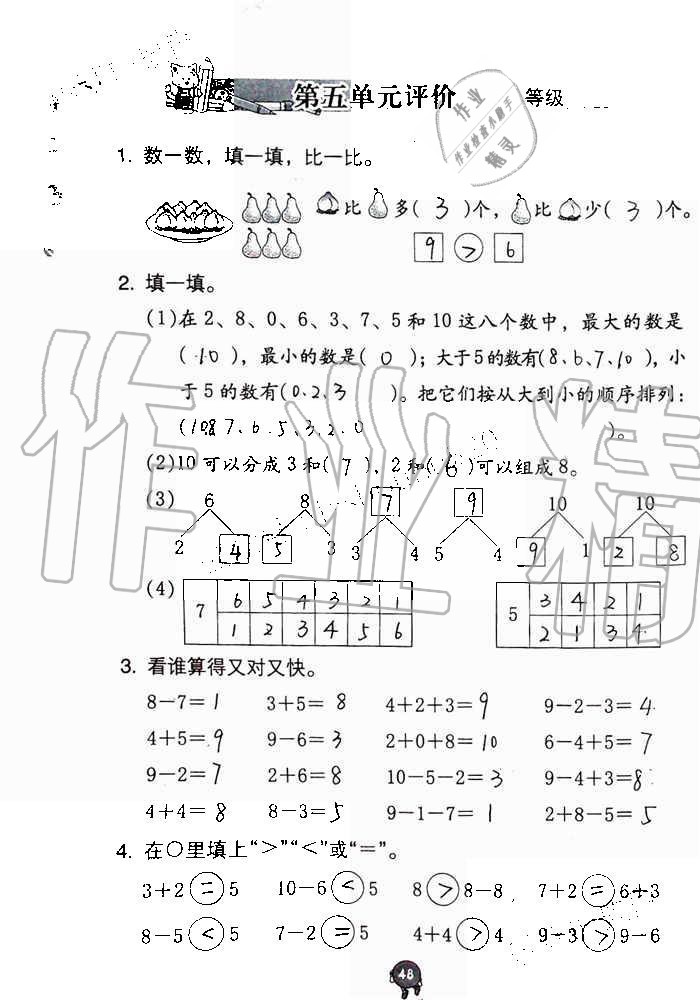 第五单元评价 等级
作业
作业检查小助手
精灵
1. 数一数，填一填，比一比。
比 多( 3 )个， 比 少( 3 )个。
9 > 6
2. 填一填。
(1)在 2、8、0、6、3、7、5 和 10 这八个数中，最大的数是
( 10 )，最小的数是( 0 )；大于5的数有(8、6、7、10)，小
于 5 的数有(0、2、3 )。把它们按从大到小的顺序排列：
(10、8、7、6、5、3、2、0 )。
(2)10 可以分成 3 和( 7 )，2 和( 6 )可以组成 8。
(3) 6 8 7 9 10 10
2 4 5 3 3 4 5 4 9 1 2 8
(4) 7 6 5 4 3 2 1 5 3 4 2 1
1 2 3 4 5 6 2 1 3 4
3. 看谁算得又对又快。
8-7=1 3+5=8 4+2+3=9 9-2-3=4
4+5=9 9-6=3 2+0+8=10 6-4+5=7
9-2=7 2+6=8 10-5-2=3 9-4+3=8
4+4=8 8-3=5 9-1-7=1 2+8-5=5
4. 在○里填上“>”“<”或“=”。
3+2=5 10-6<5 8>8-8 7+2=6+3
8-5<5 7-2=5 4+4>4 9-3>9-6
48
作业精